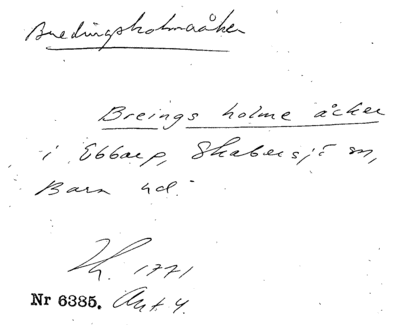 Bredingsholmaåker
Breings holme åcker
i Ebbarp, Skabersjö sn,
Bara hd.
1771
Nr 6385. Akt 4.